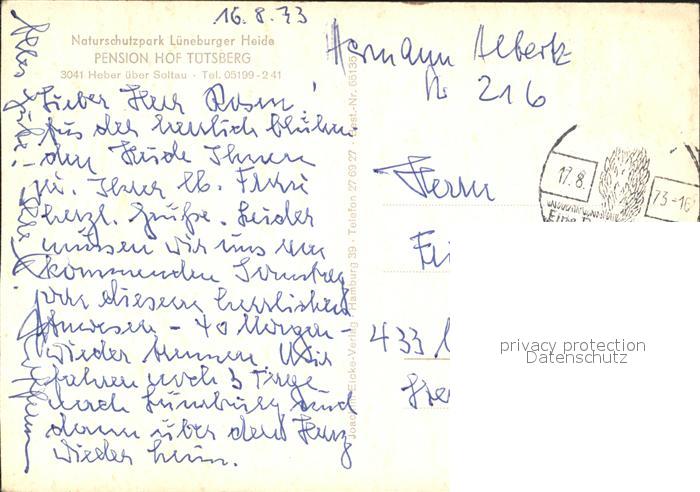 16.8.73
Naturschutzpark Lüneburger Heide
PENSION HOF TÜTSBERG
3041 Heber über Soltau · Tel. 05199-241
Lieber Herr Rosen!
Aus der herrlich blühen-
den Heide Ihnen
u. Ihrer lb. Frau
herzl. Grüße. Leider
müssen wir uns am
kommenden Sonntag
von diesem herrlichen
Anwesen - 40 Morgen -
wieder trennen. Wir
fahren noch 3 Tage
nach Lüneburg und
dann über den Harz
wieder heim.
Alles Gute!
Hermann Albertz
216
Herrn
433
17.8.
73-16
Joachim Eicke-Verlag · Hamburg 39 · Telefon 27 69 27 · Best.-Nr. 65135
privacy protection
Datenschutz